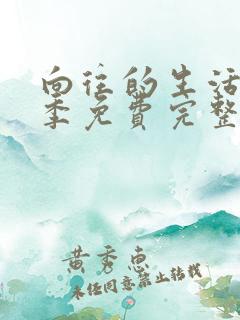 向往的生活
季免费完整
黄秀惠
未经同意禁止转载